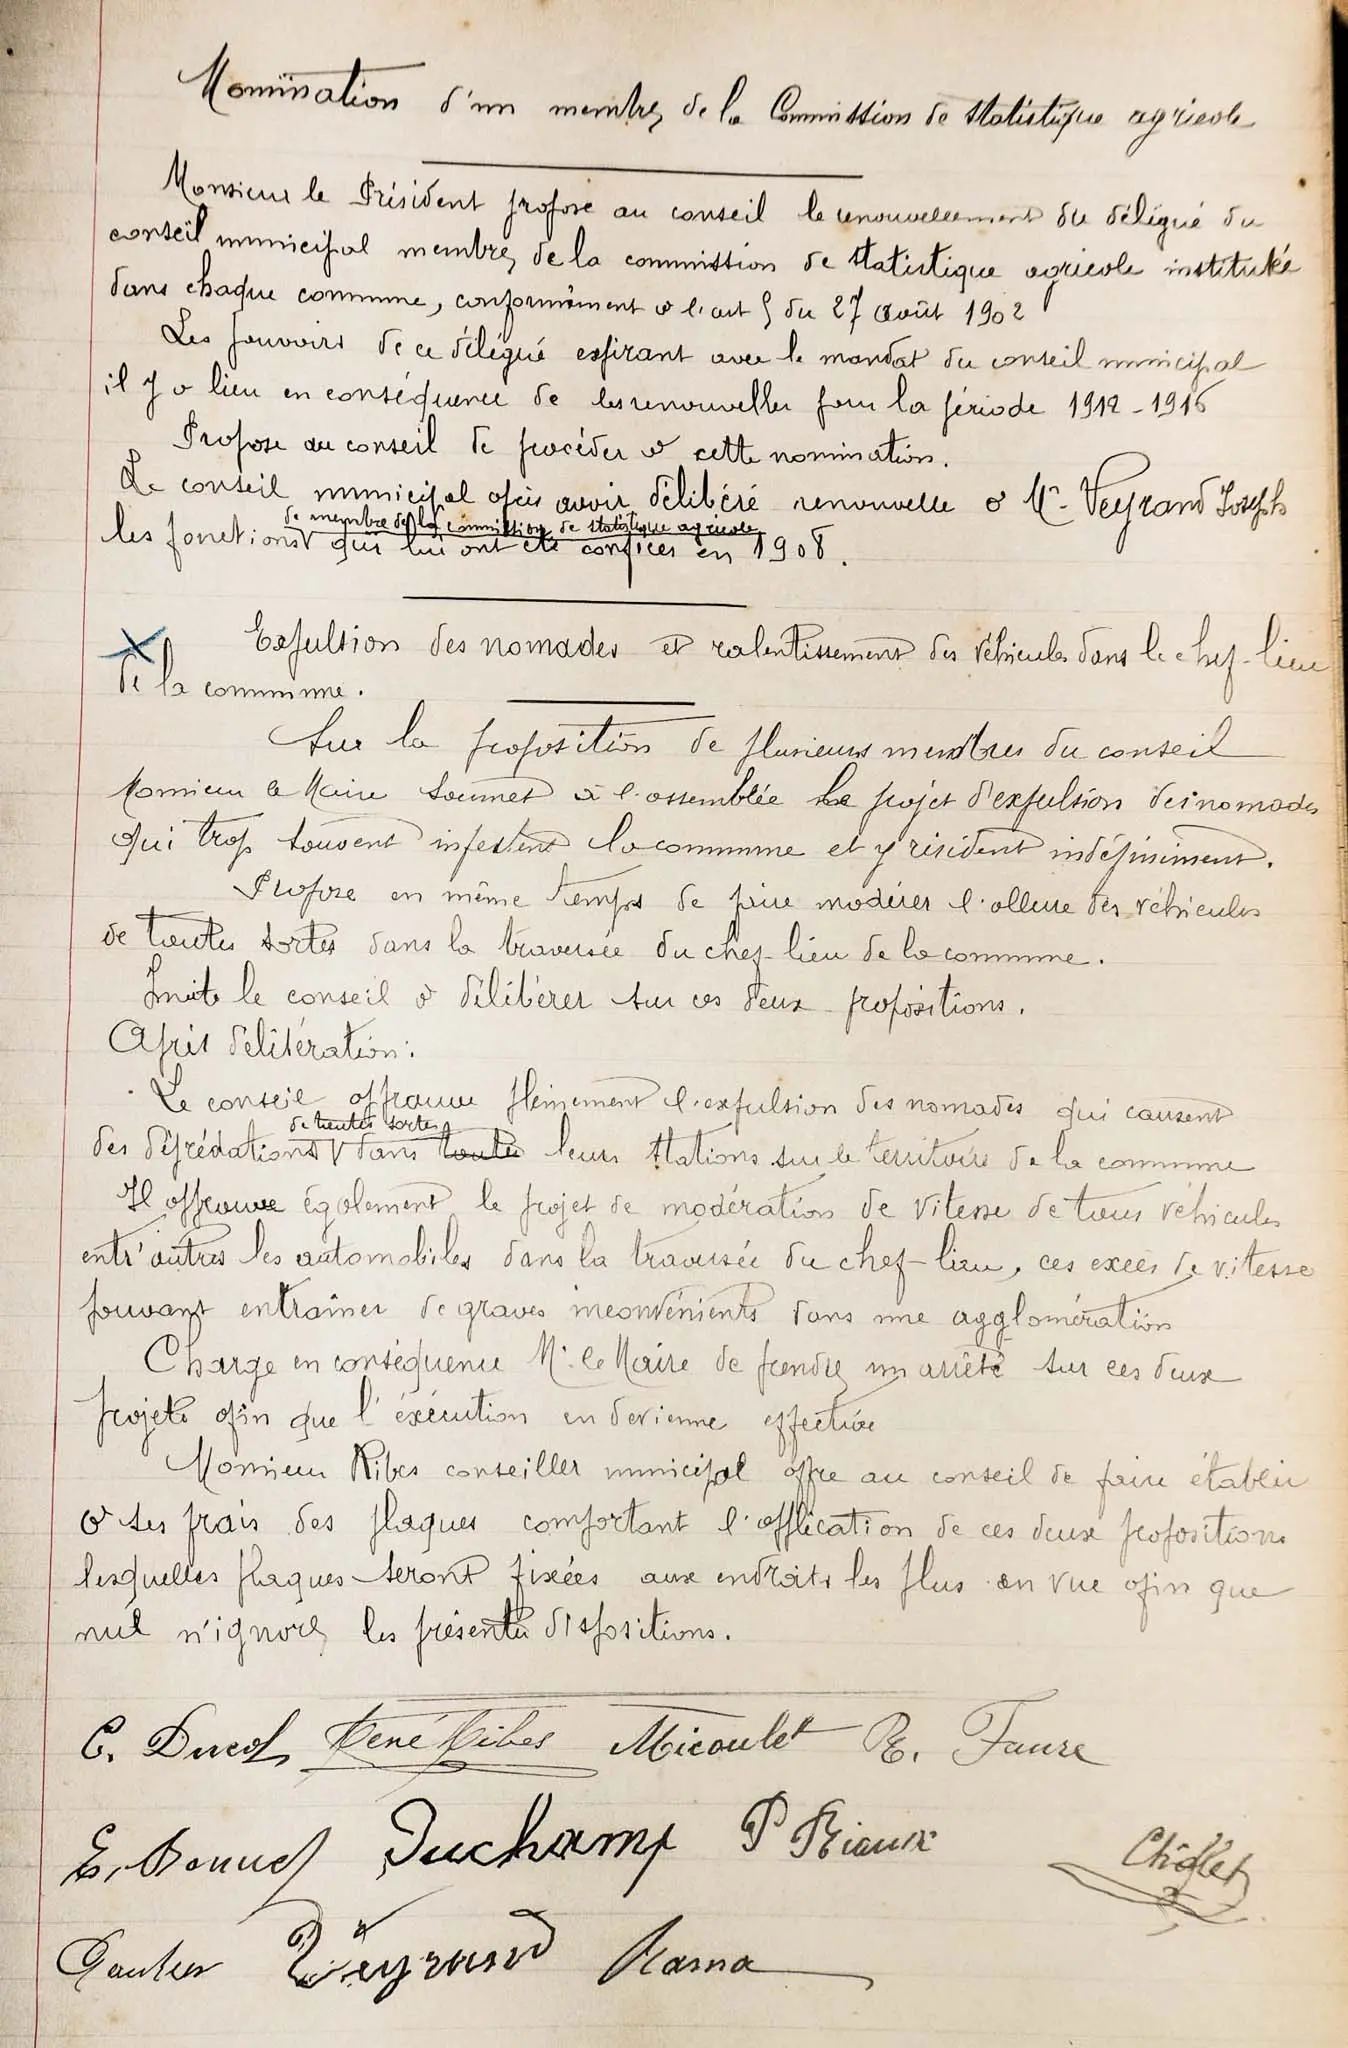 Nomination d'un membre de la Commission de statistique agricole
Monsieur le Président propose au conseil le renouvellement du délégué du
conseil municipal membre de la commission de statistique agricole instituée
dans chaque commune, conformément à l'art 5 du 27 août 1902
Les pouvoirs de ce délégué expirant avec le mandat du conseil municipal
il y a lieu en conséquence de les renouveller pour la période 1912-1916
Propose au conseil de procéder à cette nomination.
Le conseil municipal après avoir délibéré renouvelle à Mr Veyrand Joseph
de membre de la commission de statistique agricole
les fonctions qui lui ont été confiées en 1908.
Expulsion des nomades et ralentissement des véhicules dans le chef-lieu
de la commune.
Sur la proposition de plusieurs membres du conseil
Monsieur le Maire soumet à l'assemblée le projet d'expulsion des nomades
qui trop souvent infestent la commune et y résident indéfiniment.
Propose en même temps de faire modérer l'allure des véhicules
de toutes sortes dans la traversée du chef-lieu de la commune.
Invite le conseil à délibérer sur ces deux propositions.
Après délibération:
Le conseil approuve pleinement l'expulsion des nomades qui causent
de toutes sortes
des déprédations dans toutes leurs stations sur le territoire de la commune
Il approuve également le projet de modération de vitesse de tous véhicules
entr'autres les automobiles dans la traversée du chef-lieu, ces excès de vitesse
pouvant entraîner de graves inconvénients dans une agglomération
Charge en conséquence Mr le Maire de prendre un arrêté sur ces deux
projets afin que l'exécution en devienne effective
Monsieur Ribes conseiller municipal offre au conseil de faire établir
à ses frais des plaques comportant l'application de ces deux propositions
lesquelles plaques seront fixées aux endroits les plus en vue afin que
nul n'ignore les présentes dispositions.
C. Ducol René Ribes Micoulet R. Faure
E. Bonnet Duchamp P Rioux Chollet
Gautier Veyrand Rama